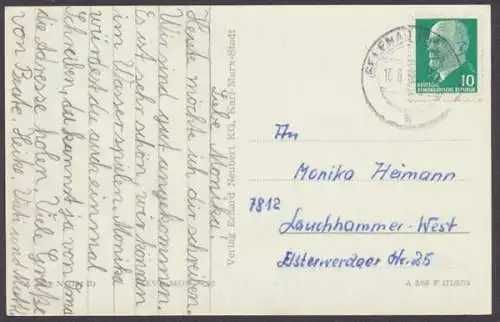 Liebe Monika!
Heute möchte ich dir schreiben.
Wir sind gut angekommen.
Es ist sehr schön, wir können
im Wasser spielen. Monika
würdest du auch einmal
Schreiben, du kannst ja von Oma
die Adresse holen. Viele Grüße
von Beate. Heike,
Verlag Erhard Neubert KG, Karl-Marx-Stadt
10
DEUTSCHE
DEMOKRATISCHE REPUBLIK
An
Monika Heimann
7812
Lauchhammer-West
Elsterwerdaer Str. 25